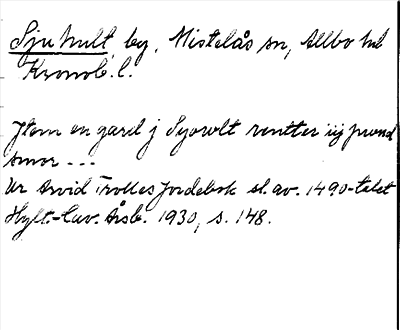 Sjuhult by, Mistelås sn, Allbo hd
Kronob. l.
Item en gard j Syovlt rentter iiij pvnd
smør ---
Ur Arvid Trolles Jordebok sl. av. 1490-talet
Hylt.-Cav. Årsb. 1930, s. 148.